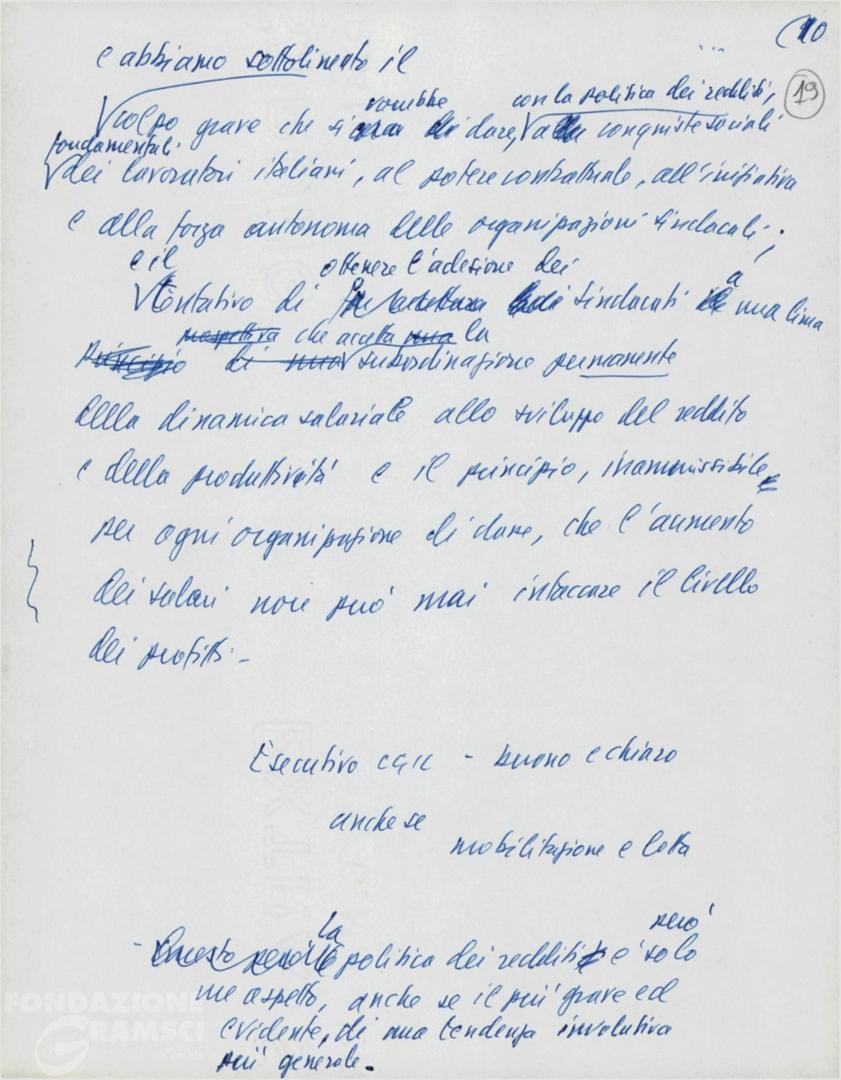 10
19
e abbiamo sottolineato il
vorrebbe con la politica dei redditi,
colpo grave che si dare, alle conquiste sociali
fondamentali
dei lavoratori italiani, al potere contrattuale, all'iniziativa
e alla forza autonoma delle organizzazioni sindacali;
e il ottenere l'adesione dei a
tentativo di sindacati una linea
prospettiva che accetta una la
principio di una subordinazione permanente
della dinamica salariale allo sviluppo del reddito
e della produttività e il principio, inammissibile
per ogni organizzazione di classe, che l'aumento
dei salari non può mai intaccare il livello
dei profitti -
Esecutivo CGIL - buono e chiaro
anche se
mobilitazione e lotta
la però
- Questo perché politica dei redditi è solo
un aspetto, anche se il più grave ed
evidente, di una tendenza involutiva
più generale.
FONDAZIONE
GRAMSCI